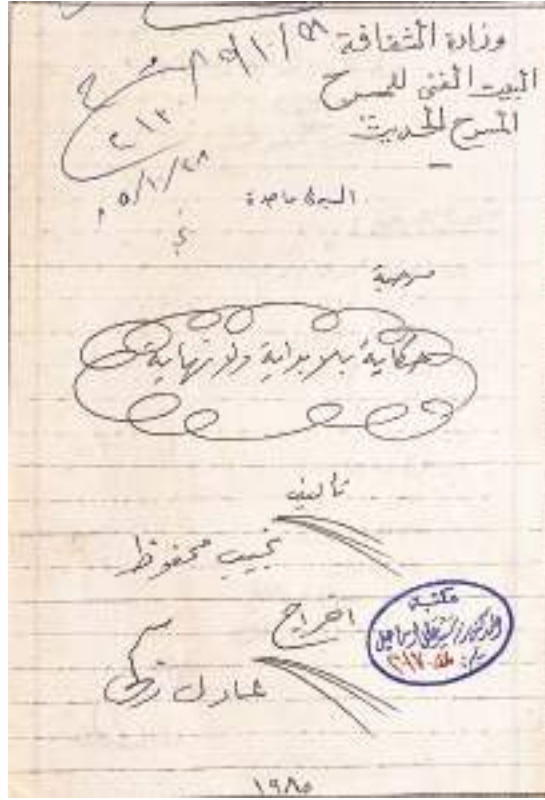 وزارة الثقافة
البيت الفنى للمسرح
المسرح الحديث
٢١٣
السيدة ماجدة
مسرحية
حكاية بلا بداية ولا نهاية
تأليف
نجيب محفوظ
اخراج
عادل زكى
مكتبة
الدكتور سيد على اسماعيل
١٩٨٥